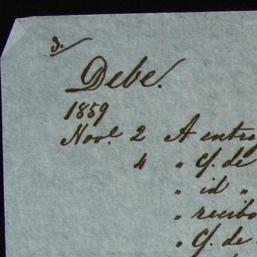 3.
Debe.
1859
Nove. 2 A entre
4 " G. de
" id "
" recibo
" G. de